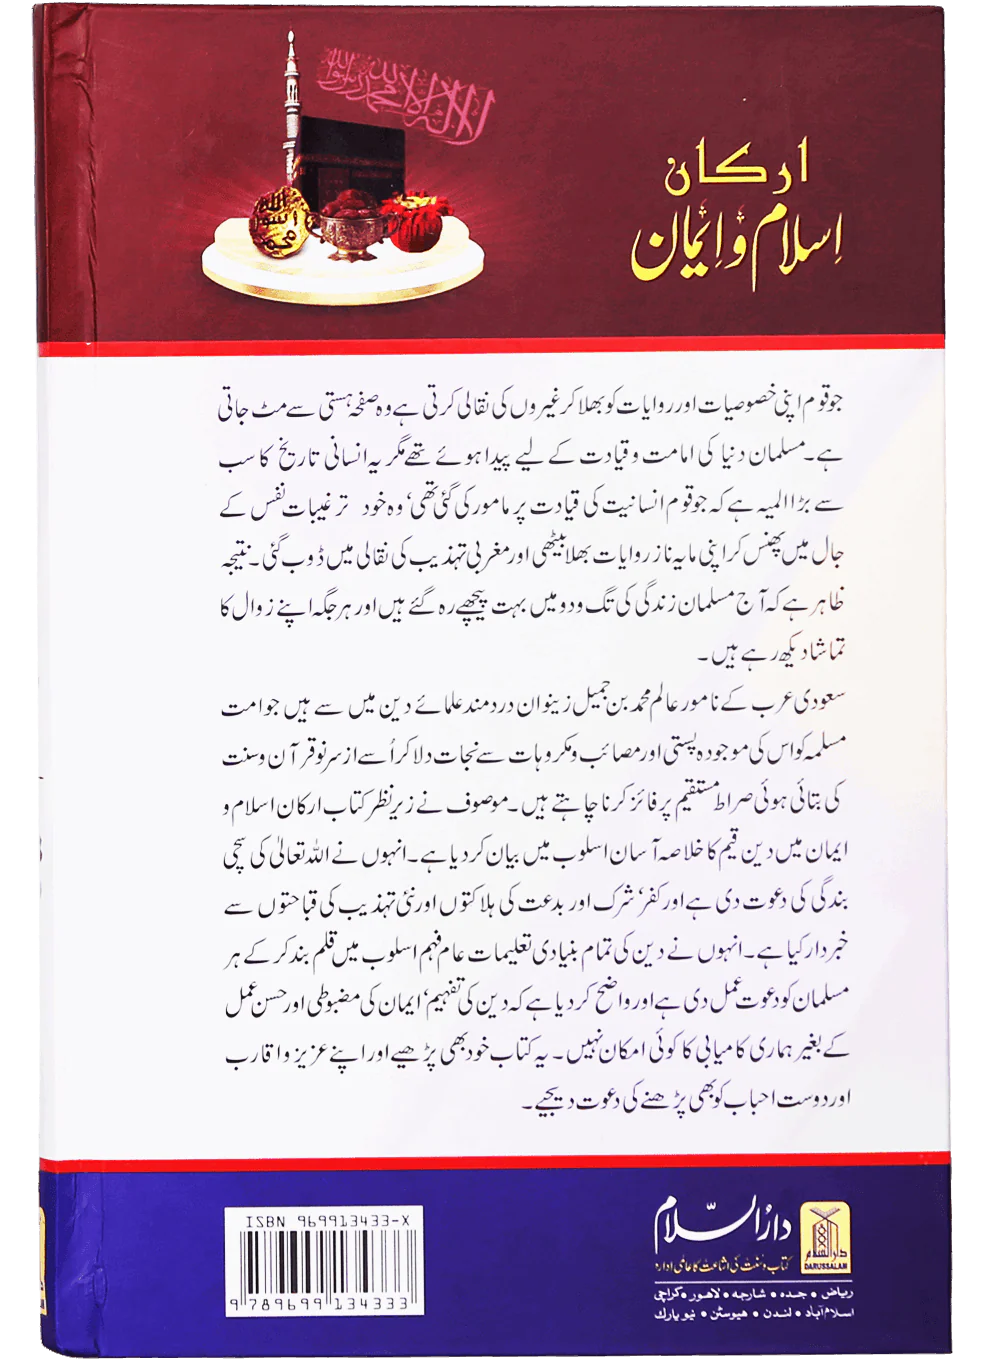 لا الہ الا اللہ محمد رسول اللہ
ارکان
اِسلام و اِیمان
اللہ
رسول
محمد
جو قوم اپنی خصوصیات اور روایات کو بھلا کر غیروں کی نقالی کرتی ہے وہ صفحہ ہستی سے مٹ جاتی
ہے۔ مسلمان دنیا کی امامت و قیادت کے لیے پیدا ہوئے تھے مگر یہ انسانی تاریخ کا سب
سے بڑا المیہ ہے کہ جو قوم انسانیت کی قیادت پر مامور کی گئی تھی، وہ خود ترغیبات نفس کے
جال میں پھنس کر اپنی مایہ ناز روایات بھلا بیٹھی اور مغربی تہذیب کی نقالی میں ڈوب گئی۔ نتیجہ
ظاہر ہے کہ آج مسلمان زندگی کی تگ و دو میں بہت پیچھے رہ گئے ہیں اور ہر جگہ اپنے زوال کا
تماشا دیکھ رہے ہیں۔
سعودی عرب کے نامور عالم محمد بن جمیل زینو ان دردمند علمائے دین میں سے ہیں جو امت
مسلمہ کو اس کی موجودہ پستی اور مصائب و مکروہات سے نجات دلا کر اُسے از سر نو قرآن و سنت
کی بتائی ہوئی صراط مستقیم پر فائز کرنا چاہتے ہیں۔ موصوف نے زیر نظر کتاب ارکان اسلام و
ایمان میں دین قیم کا خلاصہ آسان اسلوب میں بیان کر دیا ہے۔ انہوں نے اللہ تعالیٰ کی سچی
بندگی کی دعوت دی ہے اور کفر، شرک اور بدعت کی ہلاکتوں اور نئی تہذیب کی قباحتوں سے
خبردار کیا ہے۔ انہوں نے دین کی تمام بنیادی تعلیمات عام فہم اسلوب میں قلم بند کر کے ہر
مسلمان کو دعوت عمل دی ہے اور واضح کر دیا ہے کہ دین کی تفہیم، ایمان کی مضبوطی اور حسن عمل
کے بغیر ہماری کامیابی کا کوئی امکان نہیں۔ یہ کتاب خود بھی پڑھیے اور اپنے عزیز و اقارب
اور دوست احباب کو بھی پڑھنے کی دعوت دیجیے۔
ISBN 969913433-X
9 789699 134333
دارُالسّلام
کتاب و سُنت کی اشاعت کا عالمی ادارہ
دارالسلام
DARUSSALAM
ریاض • جدہ • شارجہ • لاہور • کراچی
اسلام آباد • لندن • ہیوسٹن • نیو یارک